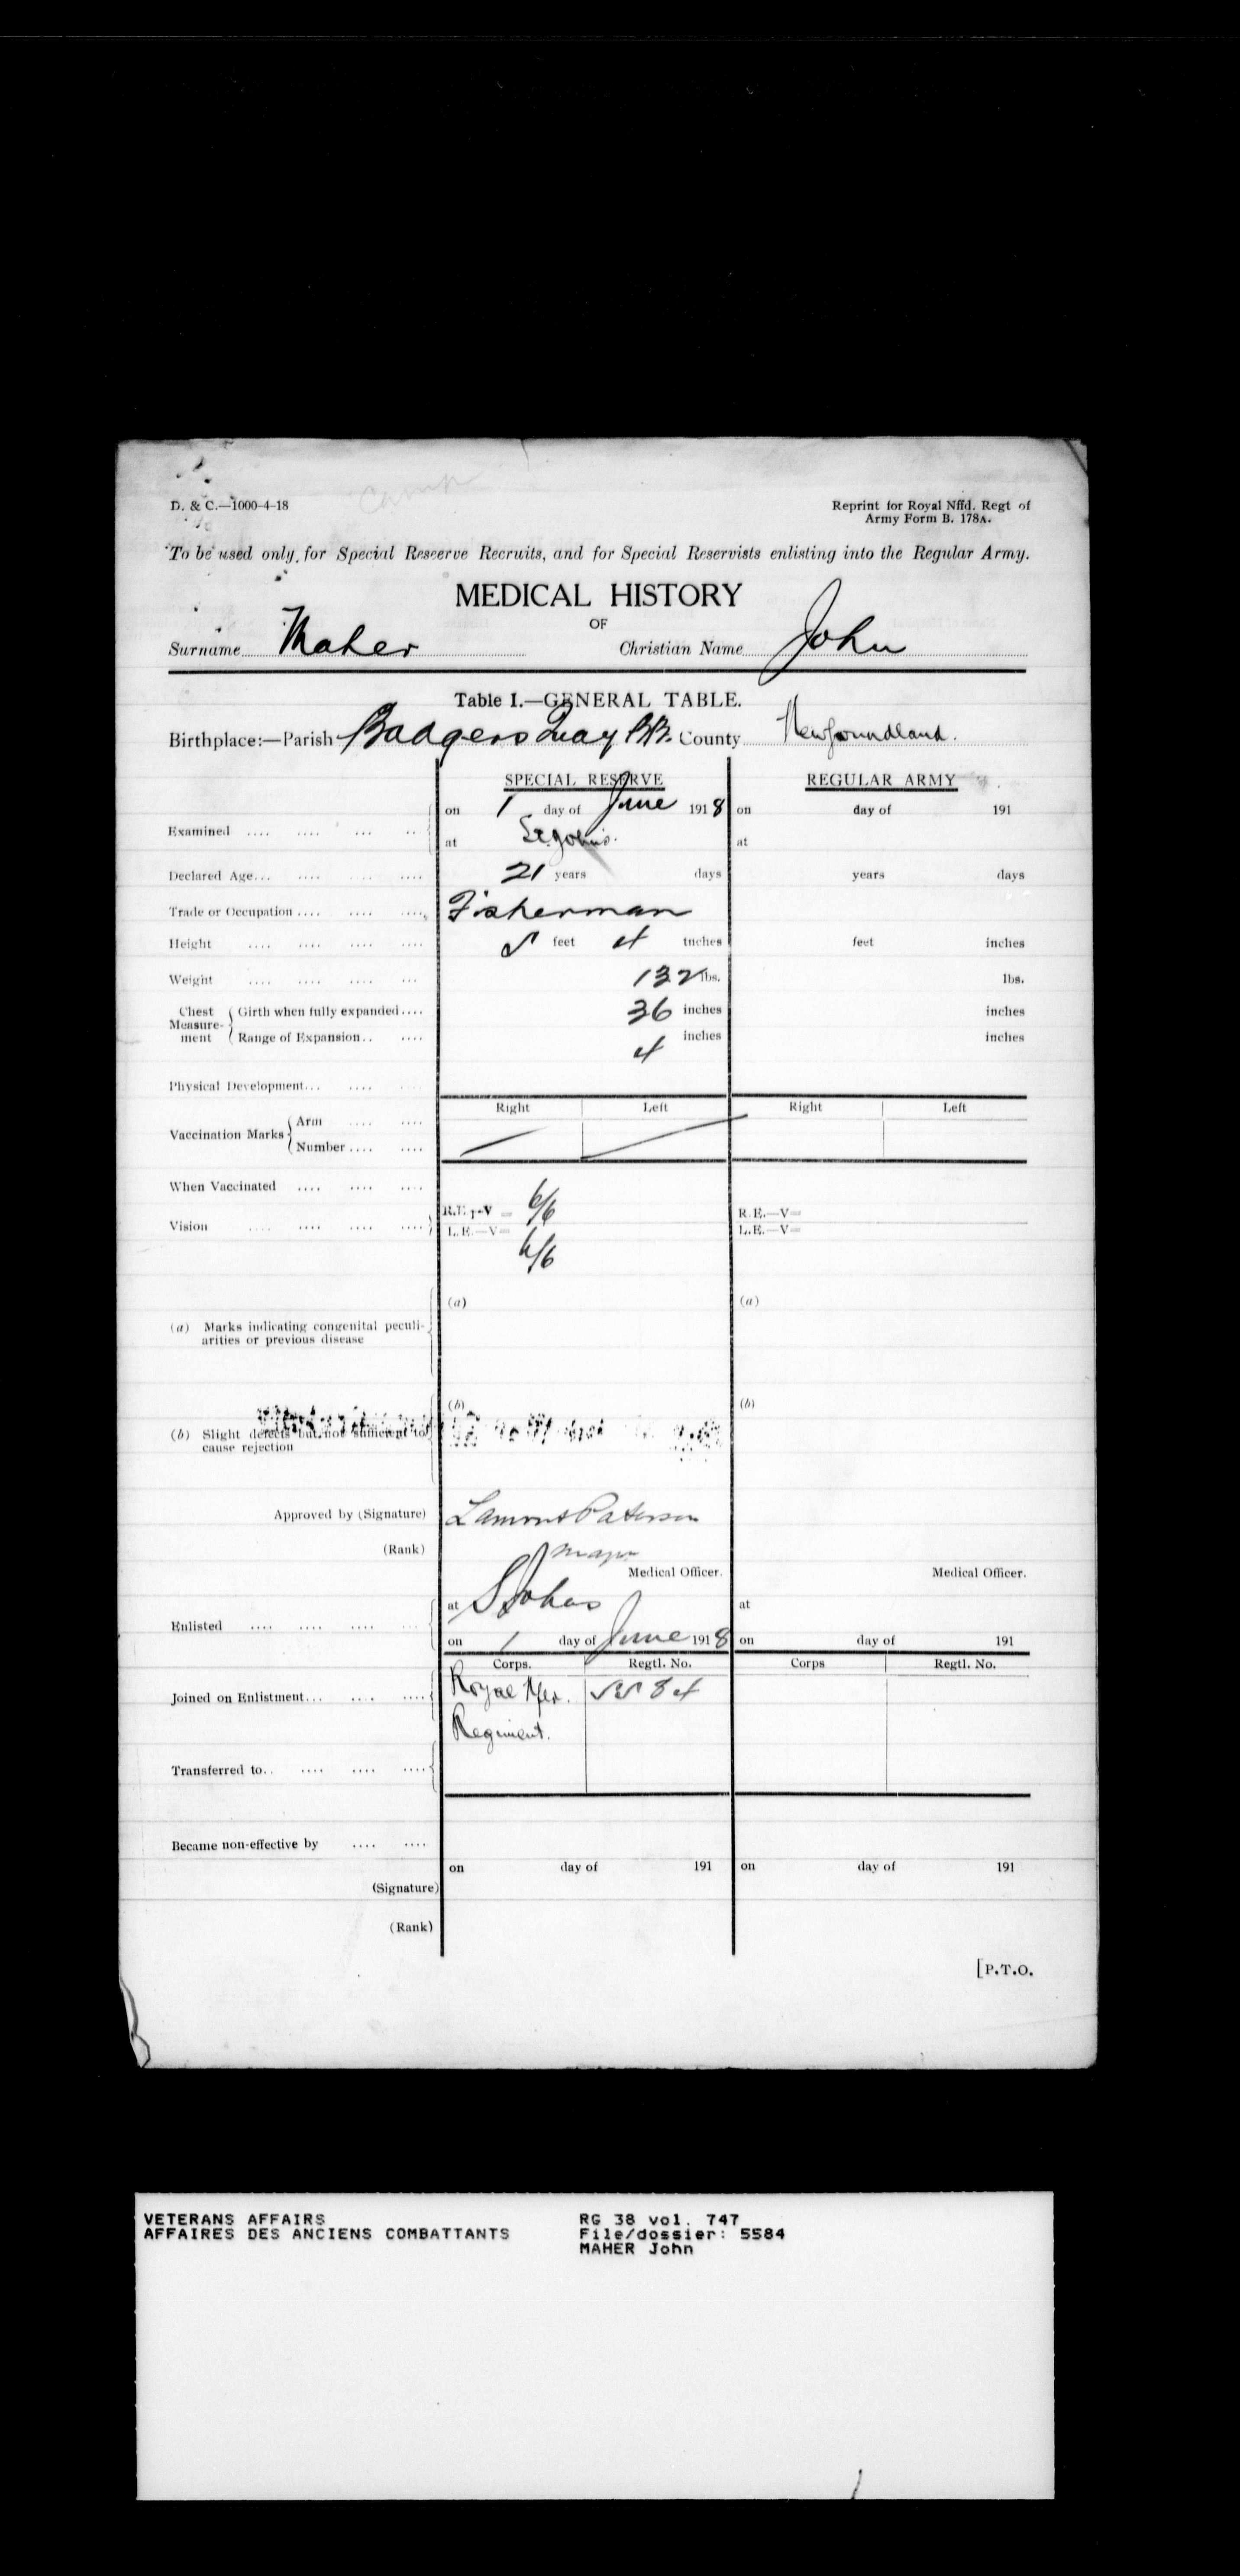 D. & C.—1000-4-18
Reprint for Royal Nffd. Regt of
Army Form B. 178A.
To be used only for Special Reserve Recruits, and for Special Reservists enlisting into the Regular Army.
MEDICAL HISTORY
OF
Surname Maher Christian Name John
Table I.—GENERAL TABLE.
Birthplace:—Parish Badgers Quay B.B. County Newfoundland.
SPECIAL RESERVE REGULAR ARMY
on 1 day of June 1918 on day of 191
Examined .... .... ... ...
at St. John's. at
Declared Age... .... .... .... 21 years days years days
Trade or Occupation .... .... .... Fisherman
Height .... .... .... .... 5 feet 4 inches feet inches
Weight .... .... .... ... 132 lbs. lbs.
Chest Measurement { Girth when fully expanded .... 36 inches inches
Range of Expansion .. .... 4 inches inches
Physical Development... .... ....
Right Left Right Left
Vaccination Marks { Arm .... ....
Number .... ....
When Vaccinated .... .... ....
Vision .... .... .... .... R.E.—V= 6/6 R.E.—V=
L.E.—V= 6/6 L.E.—V=
(a) (a)
(a) Marks indicating congenital peculi-
arities or previous disease
(b) (b)
(b) Slight defects but not sufficient to
cause rejection
Approved by (Signature) Lamont Paterson
(Rank) Major
Medical Officer. Medical Officer.
at St Johns at
Enlisted .... .... .... ...
on 1 day of June 1918 on day of 191
Corps. Regtl. No. Corps Regtl. No.
Joined on Enlistment... .... .... Royal Nfld. 5584
Regiment.
Transferred to.. .... .... ....
Became non-effective by .... ....
on day of 191 on day of 191
(Signature)
(Rank)
[P.T.O.
VETERANS AFFAIRS RG 38 vol. 747
AFFAIRES DES ANCIENS COMBATTANTS File/dossier: 5584
MAHER John